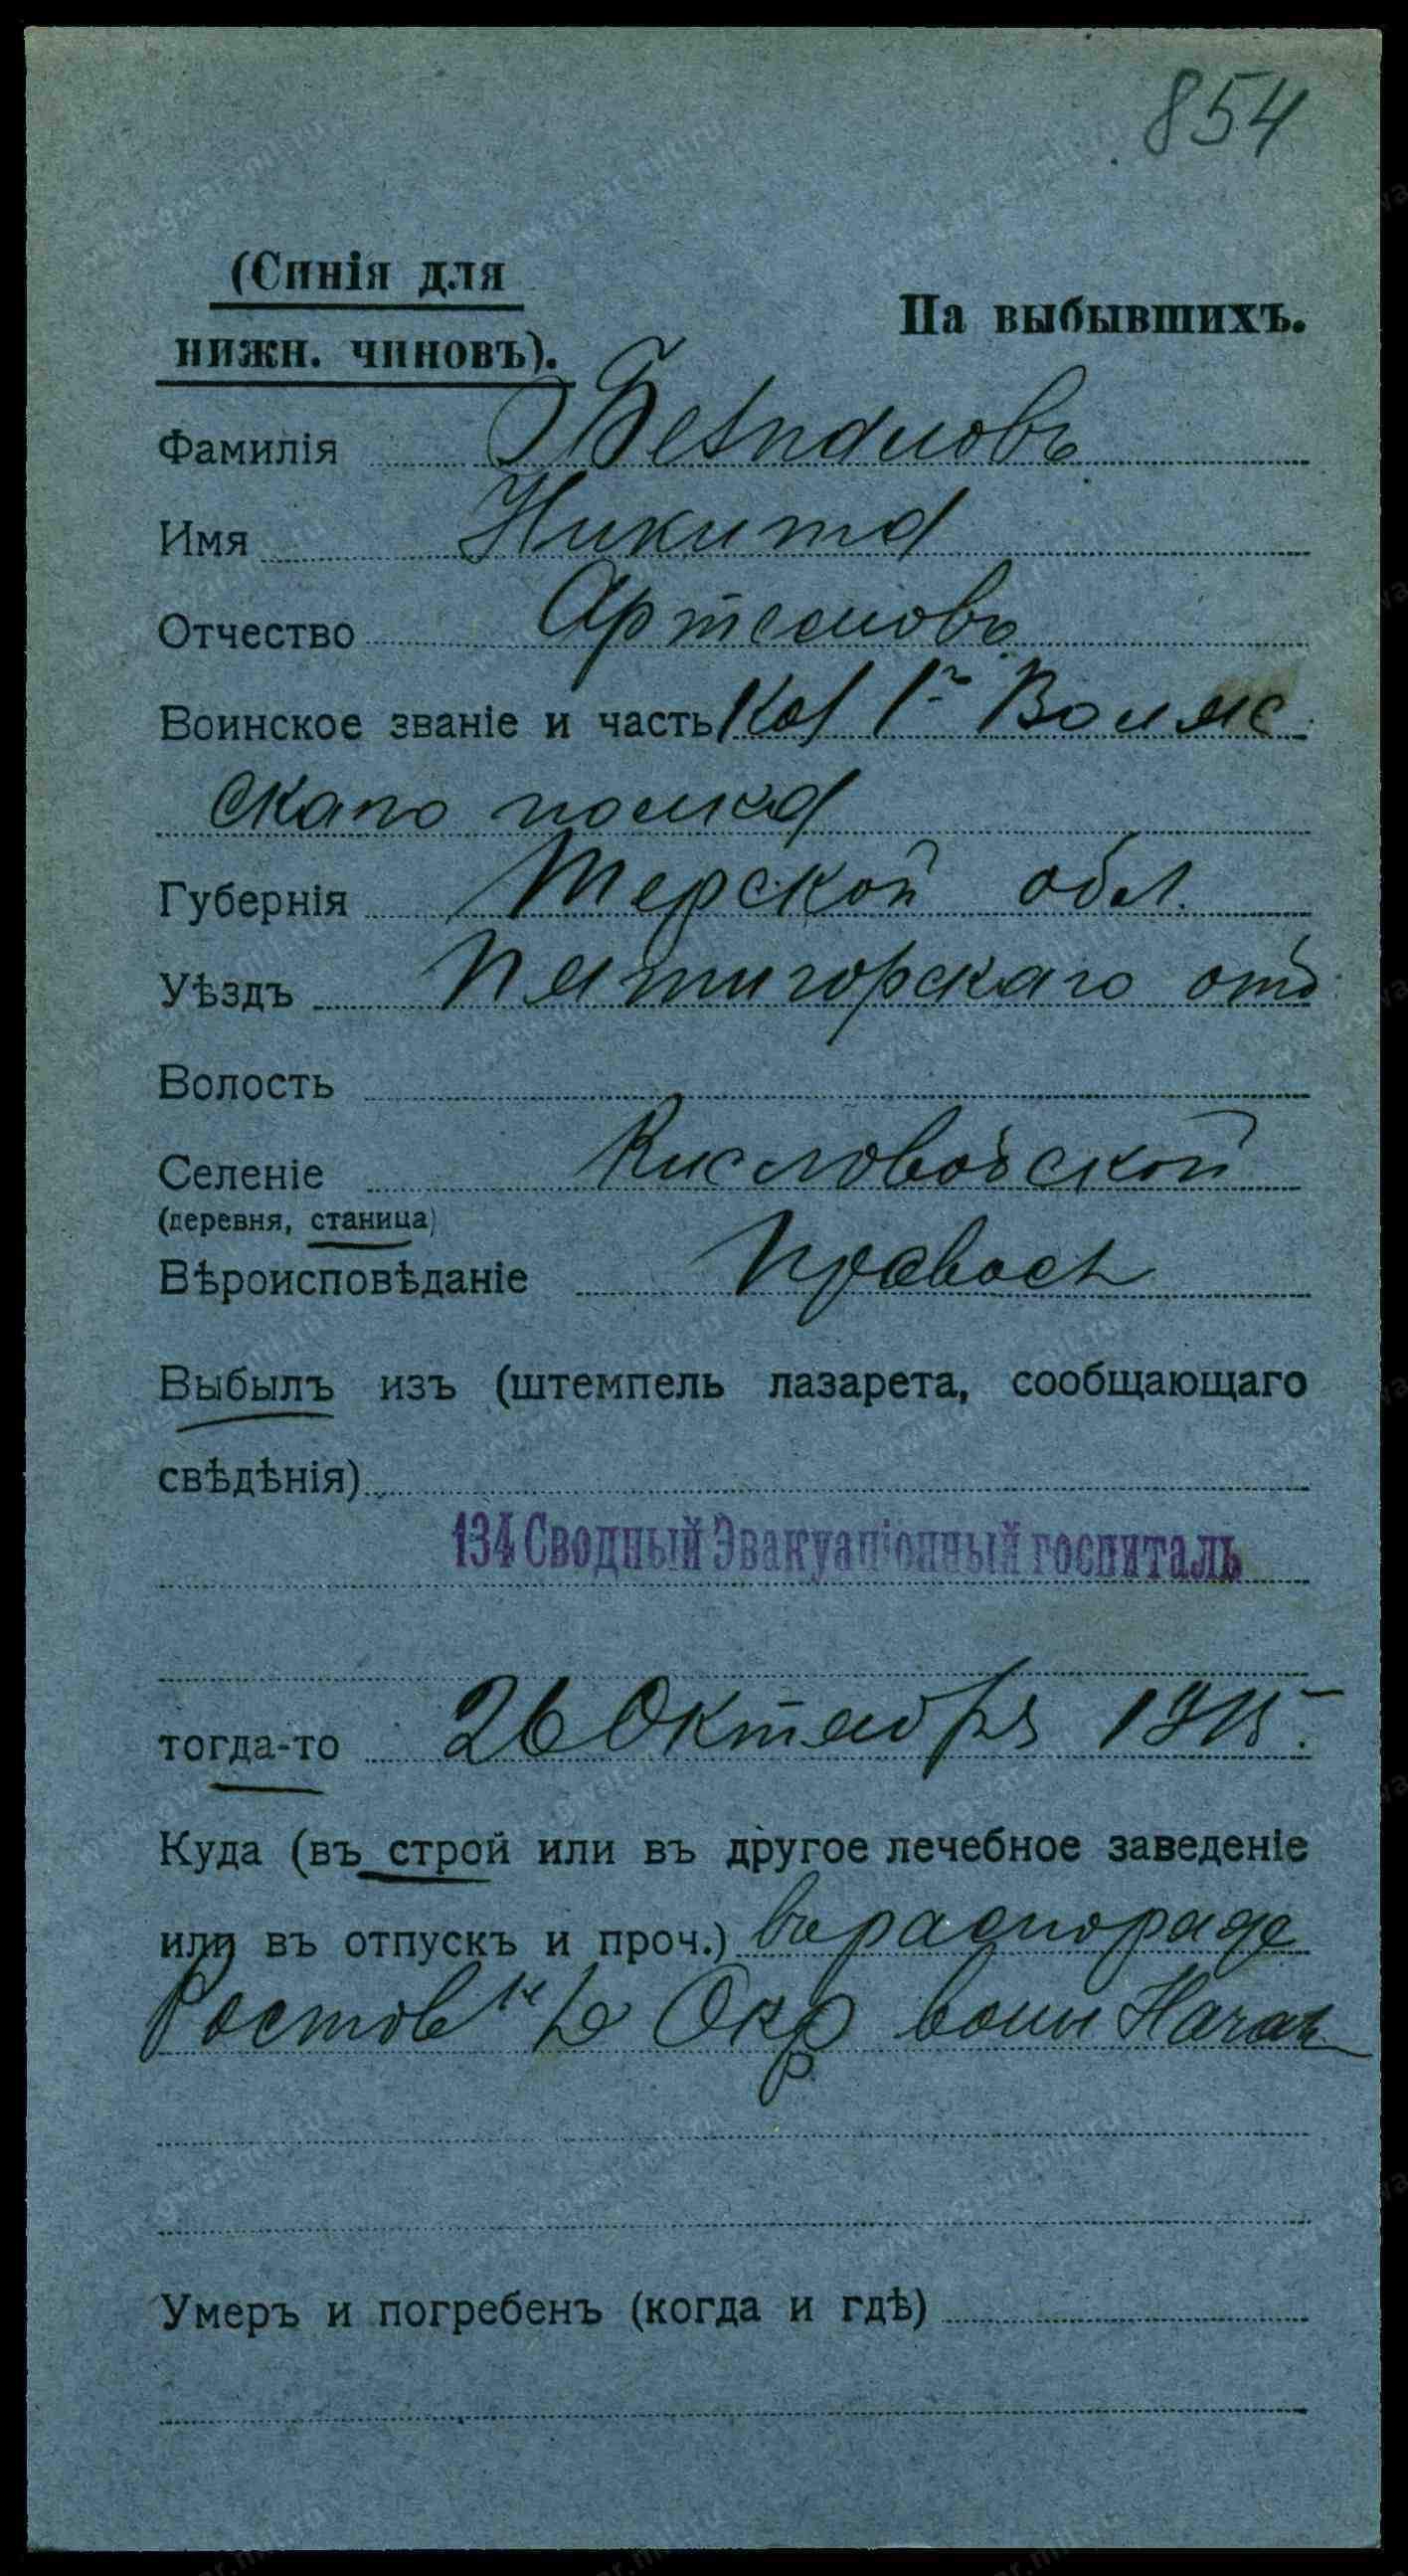 854
(Синія для
нижн. чиновъ).
На выбывшихъ.
Фамилія Безпаловъ
Имя Никита
Отчество Артемовъ
Воинское званіе и часть Каз 1го Волжс
скаго полка
Губернія Терской обл.
Уѣздъ Пятигорскаго отд
Волость
Селеніе Кисловодской
(деревня, станица)
Вѣроисповѣданіе Правосл
Выбылъ изъ (штемпель лазарета, сообщающаго
свѣдѣнія)
134 Сводный Эвакуаціонный госпиталь
тогда-то 26 Октября 1915.
Куда (въ строй или въ другое лечебное заведеніе
или въ отпускъ и проч.) въ
Ростов н/Д Окр воин Начал
Умеръ и погребенъ (когда и гдѣ)